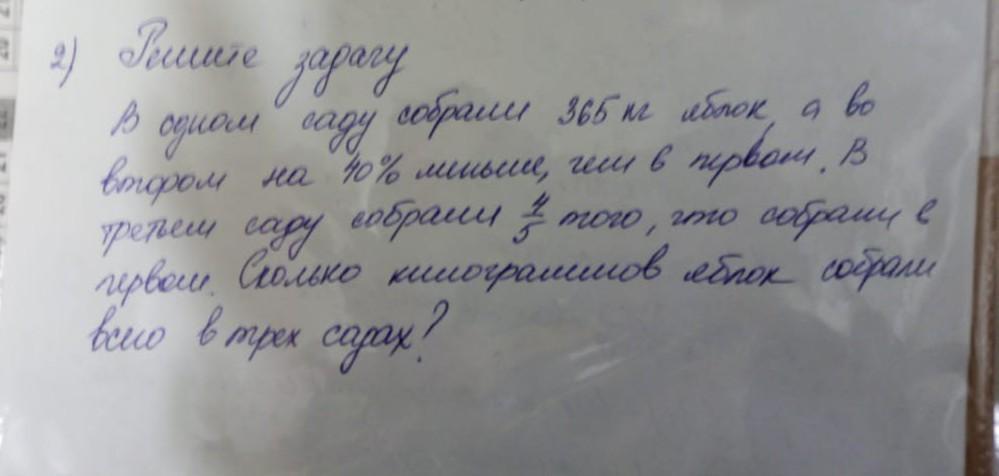 2) Решите задачу
В одном саду собрали 365 кг яблок, а во
втором на 40% меньше, чем в первом. В
третьем саду собрали 4/5 того, что собрали с
первом. Сколько килограммов яблок собрали
всего в трех садах?